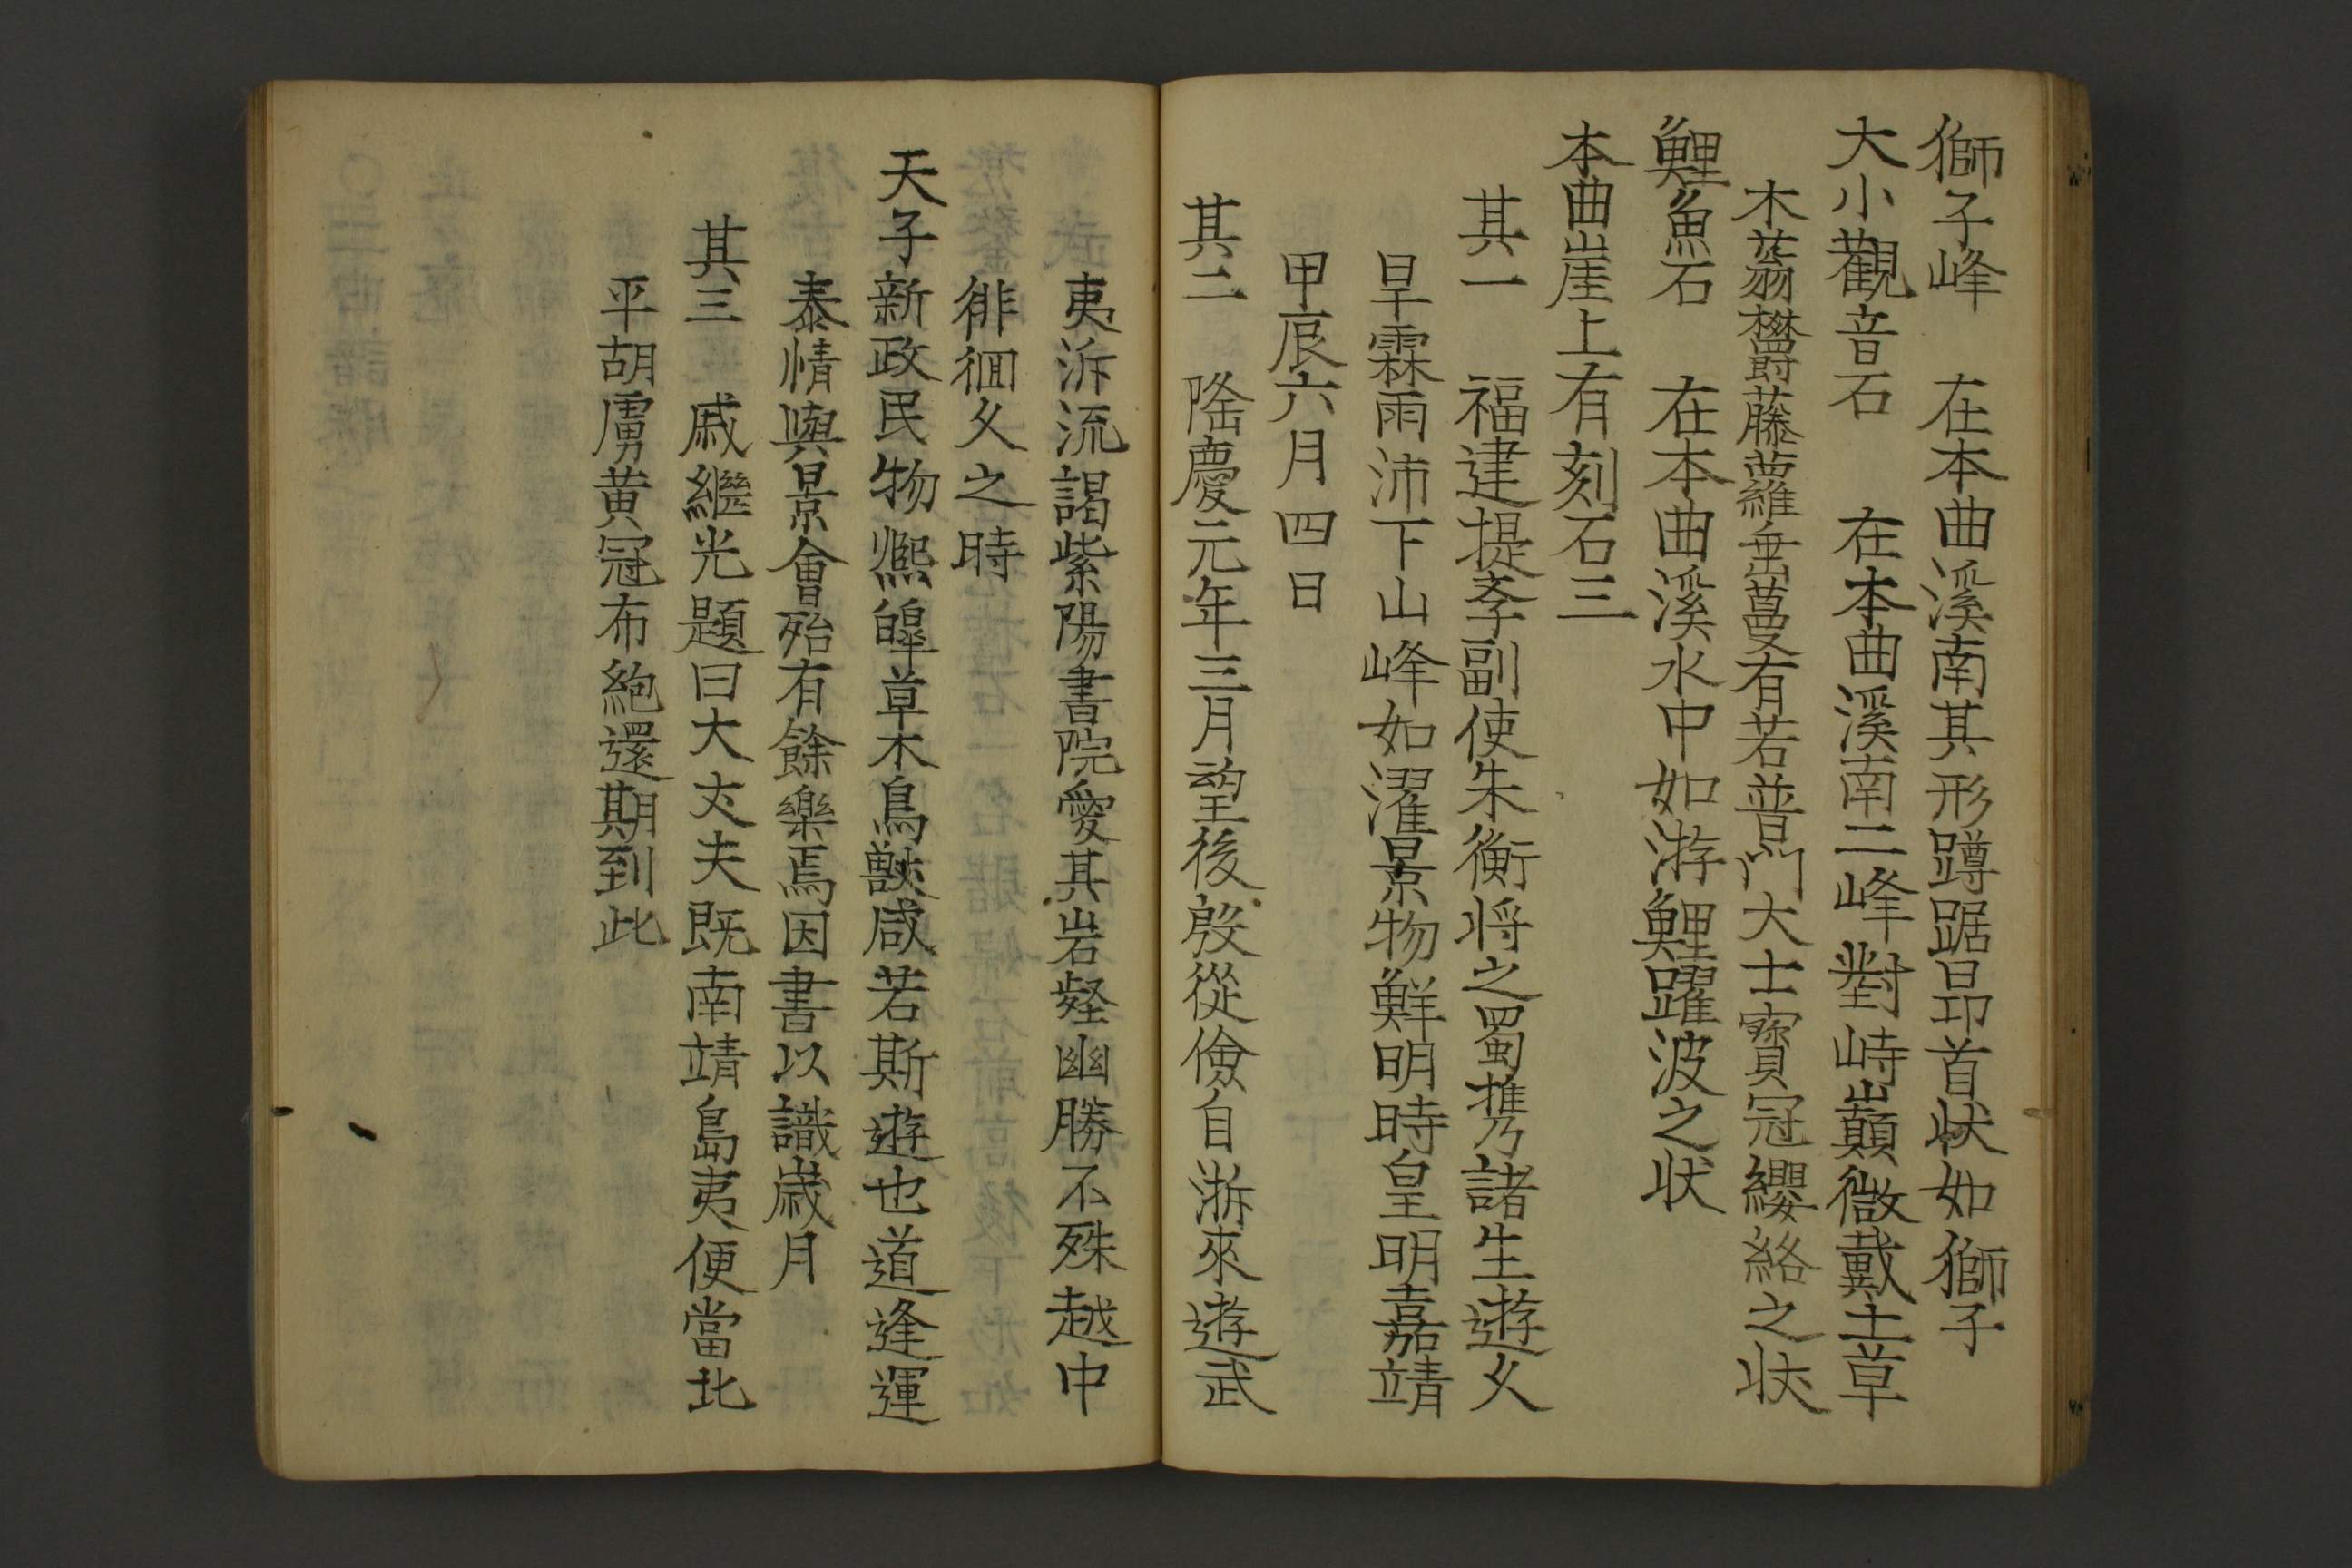 獅子峰　在本曲溪南其形蹲踞昂首狀如獅子
大小觀音石　在本曲溪南二峰對峙巔微戴土草
木蓊欝藤蘿垂蔓有若普門大士寶冠纓絡之狀
鯉魚石　在本曲溪水中如游鯉躍波之状
本曲崖上有刻石三
其一　福建提斈副使朱衡将之蜀携諸生遊久
旱霖雨沛下山峰如濯景物鮮明時皇明嘉靖
甲辰六月四日
其二　隆慶元年三月望後殷從儉自浙來遊武
夷泝流謁紫陽書院愛其岩壑幽勝不殊越中
徘徊久之時
天子新政民物熈皥草木鳥獸咸若斯遊也道逢運
泰情與景會殆有餘樂焉因書以識歲月
其三　戚繼光題曰大丈夫既南靖島夷便當北
平胡虜黄冠布絶還期到此